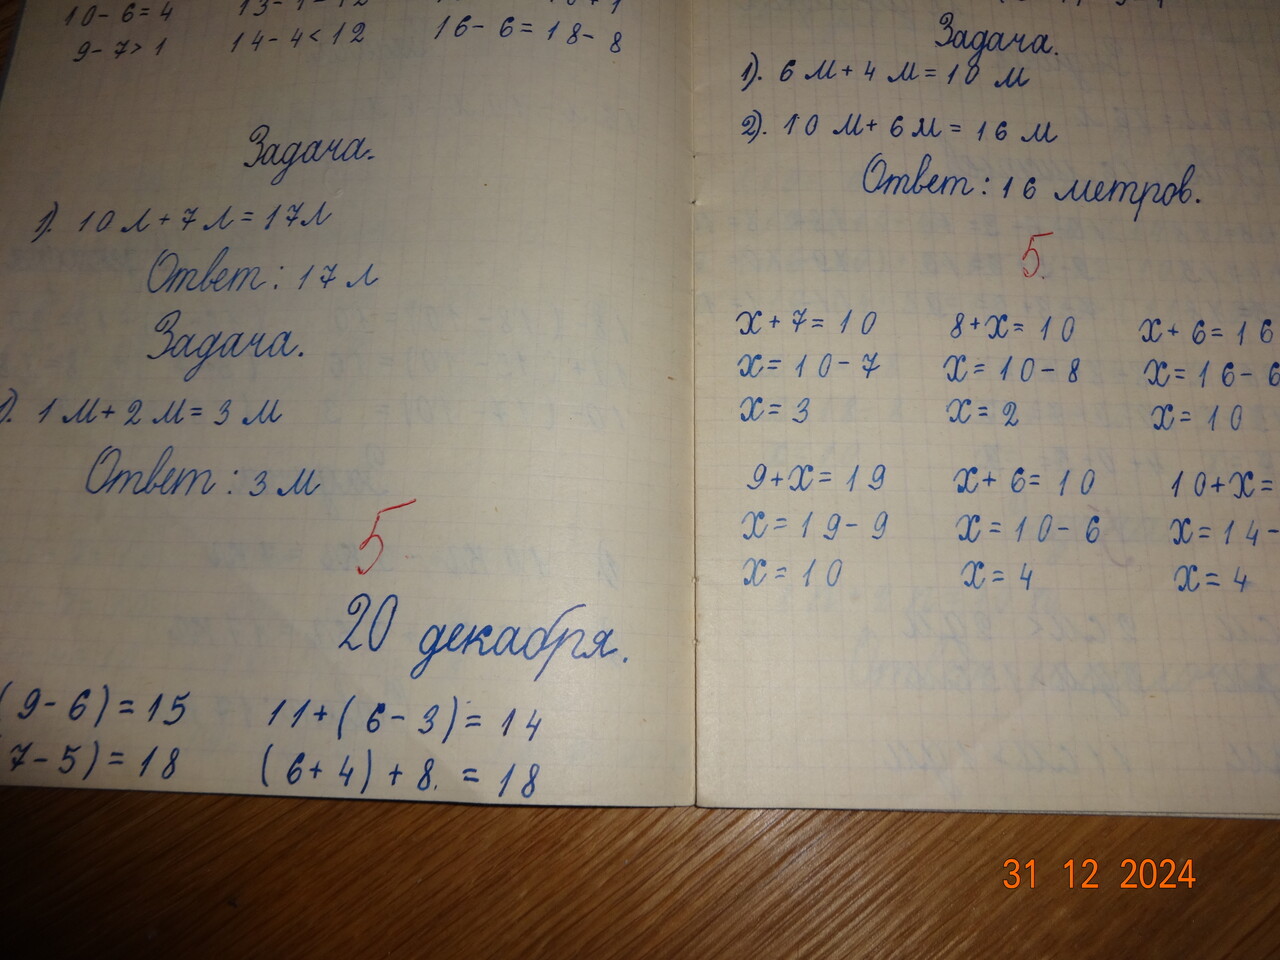 10-6=4
9-7>1 14-4<12 16-6=18-8
Задача.
1). 10 л+7 л=17л
Ответ: 17 л
Задача.
1 м+2 м=3 м
Ответ: 3 м
5
20 декабря.
(9-6)=15 11+(6-3)=14
7-5)=18 (6+4)+8.=18
Задача.
1). 6 м+4 м=10 м
2). 10 м+6м=16 м
Ответ: 16 метров.
5
х+7=10 8+х=10 х+6=16
х=10-7 х=10-8 х=16-6
х=3 х=2 х=10
9+х=19 х+6=10 10+х=
х=19-9 х=10-6 х=14-
х=10 х=4 х=4
31 12 2024